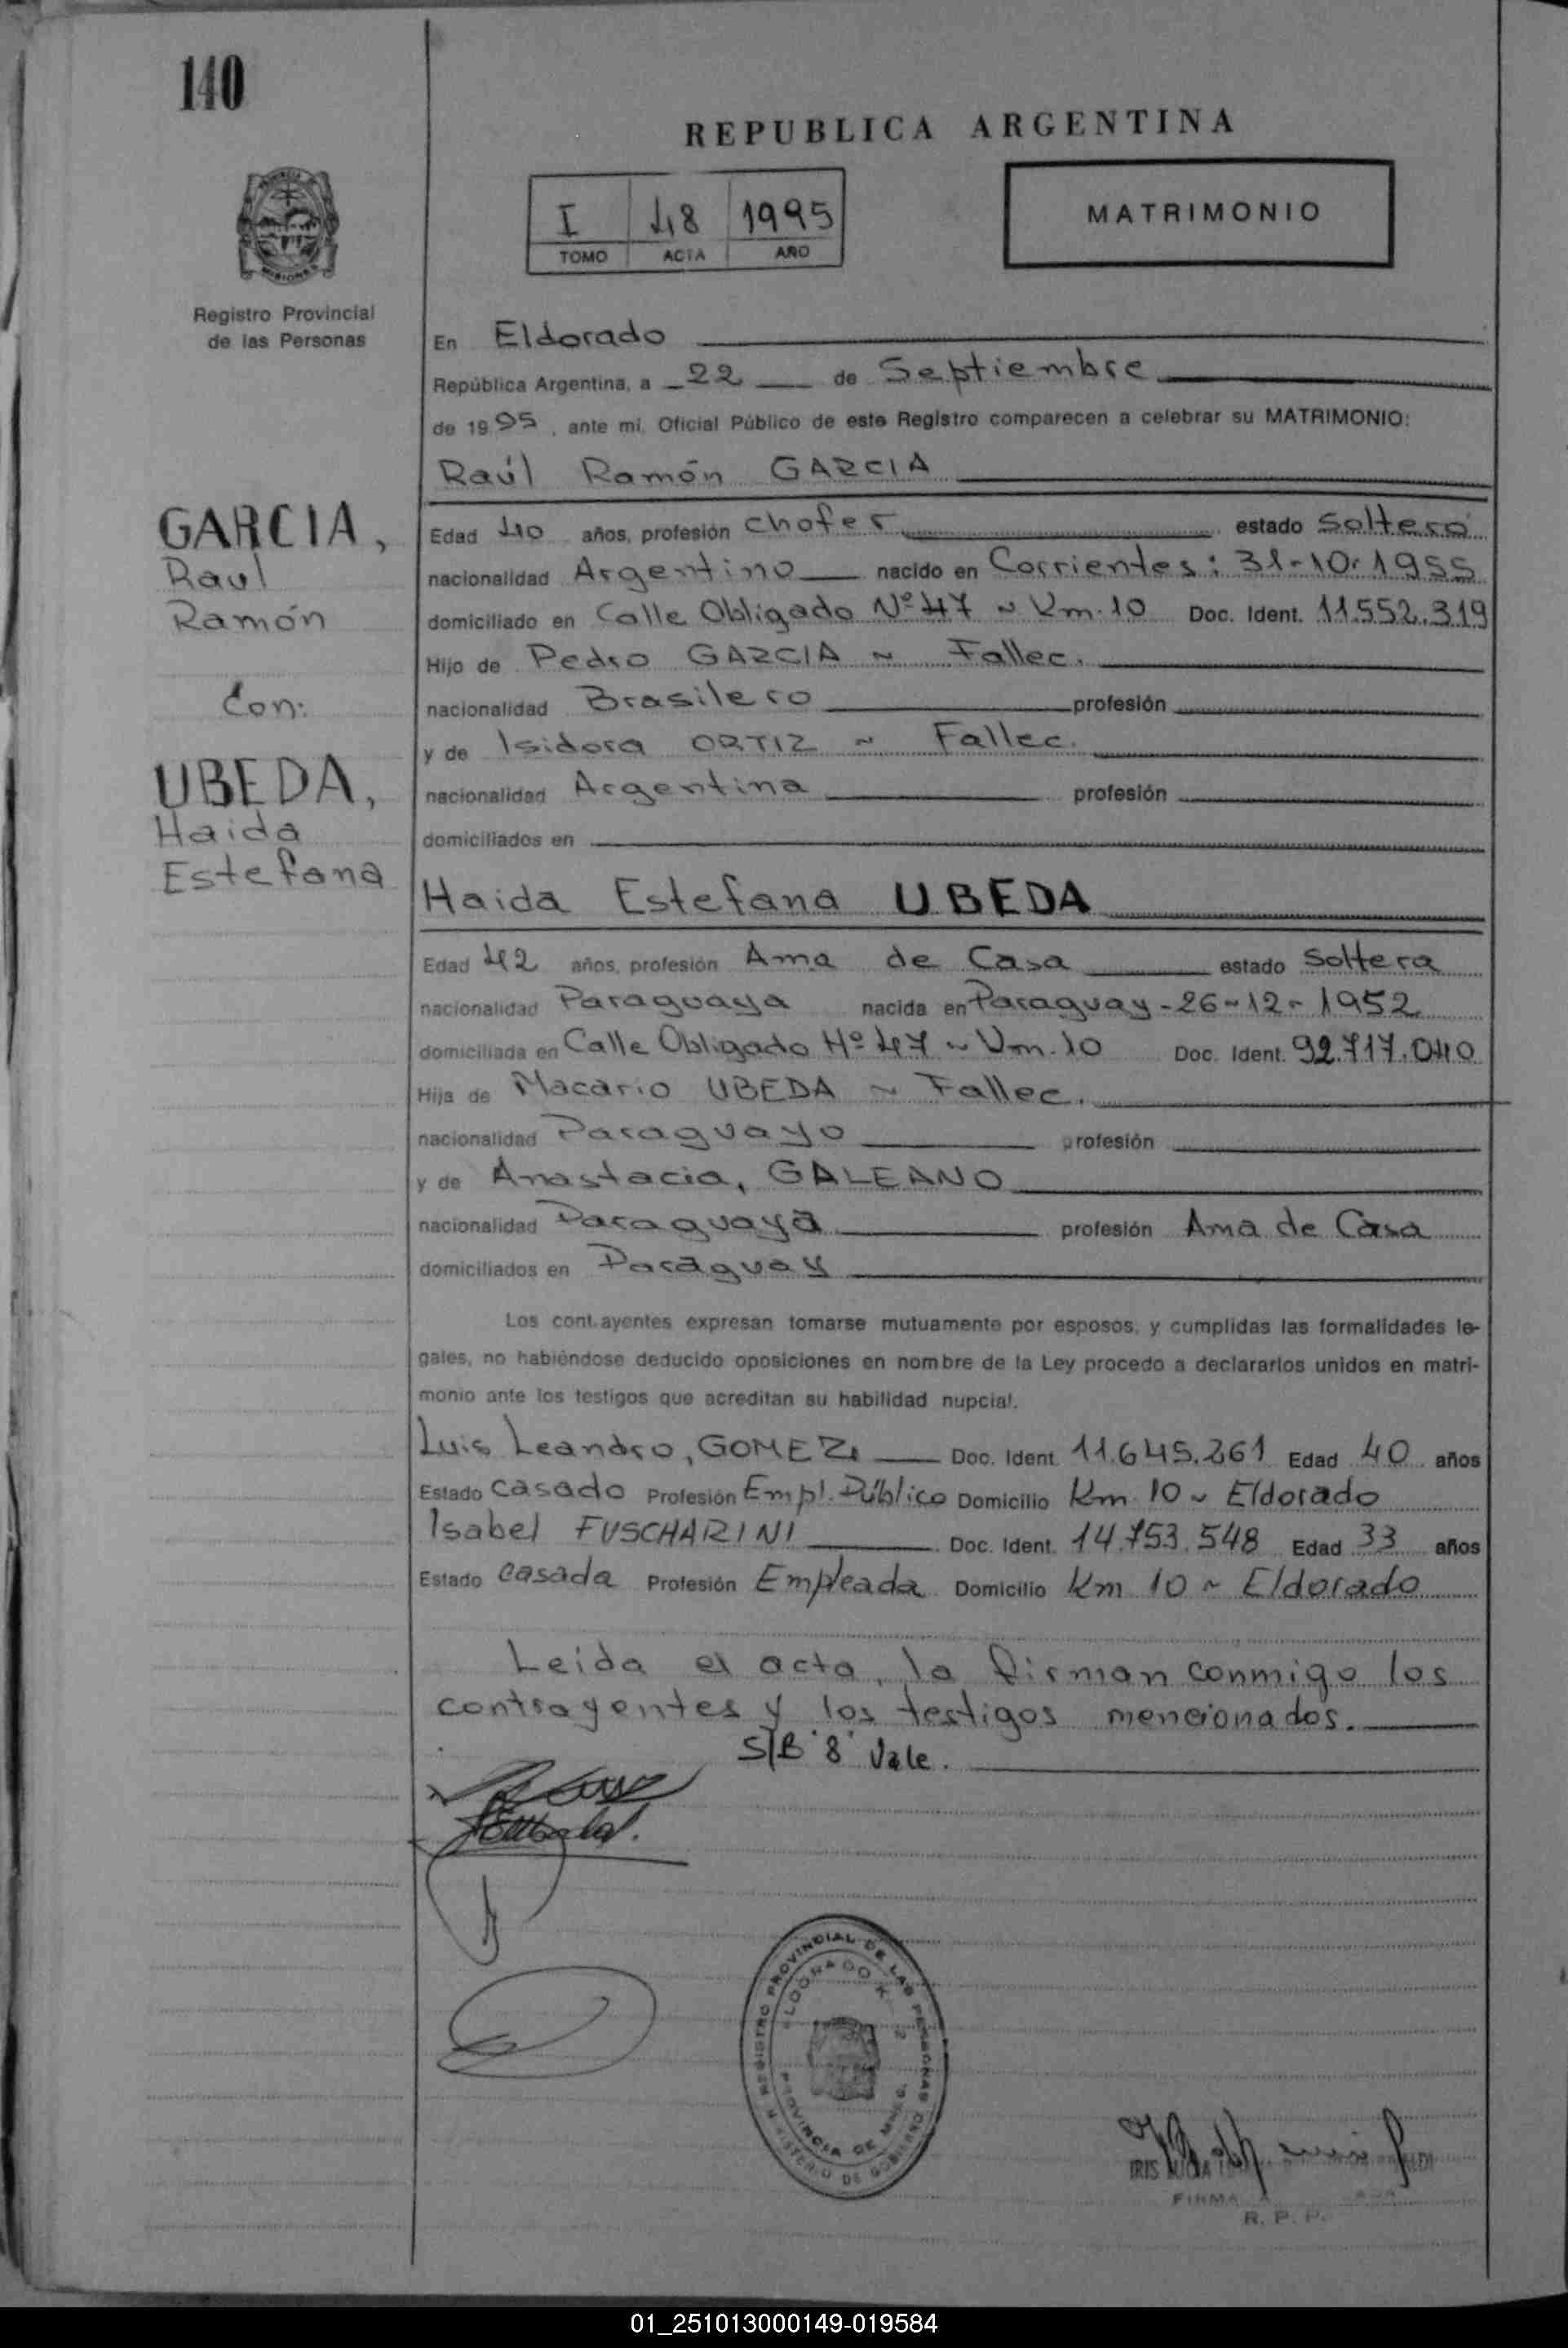 140
REPUBLICA ARGENTINA
I 48 1995
TOMO ACTA AÑO
MATRIMONIO
Registro Provincial
de las Personas
En Eldorado
República Argentina, a 22 de Septiembre
de 1995, ante mi, Oficial Público de este Registro comparecen a celebrar su MATRIMONIO:
Raúl Ramón GARCIA
GARCIA,
Raul
Ramón
Con:
UBEDA,
Haida
Estefana
Edad 40 años, profesión chofer estado Soltero
nacionalidad Argentino nacido en Corrientes: 31-10-1955
domiciliado en Calle Obligado Nº 47 ~ Km. 10 Doc. Ident. 11.552.319
Hijo de Pedro GARCIA ~ Fallec.
nacionalidad Brasilero profesión
y de Isidora ORTIZ ~ Fallec.
nacionalidad Argentina profesión
domiciliados en
Haida Estefana UBEDA
Edad 42 años, profesión Ama de Casa estado Soltera
nacionalidad Paraguaya nacida en Paraguay - 26-12-1952
domiciliada en Calle Obligado Nº 47 ~ Km. 10 Doc. Ident. 92.717.040
Hija de Macario UBEDA ~ Fallec.
nacionalidad Paraguayo profesión
y de Anastacia, GALEANO
nacionalidad Paraguaya profesión Ama de Casa
domiciliados en Paraguay
Los contrayentes expresan tomarse mutuamente por esposos, y cumplidas las formalidades le-
gales, no habiéndose deducido oposiciones en nombre de la Ley procedo a declararlos unidos en matri-
monio ante los testigos que acreditan su habilidad nupcial.
Luis Leandro, GOMEZ Doc. Ident. 11.645.261 Edad 40 años
Estado Casado Profesión Empl. Público Domicilio Km 10 ~ Eldorado
Isabel FUSCHARINI Doc. Ident. 14.753.548 Edad 33 años
Estado casada Profesión Empleada Domicilio Km 10 ~ Eldorado
Leida el acta, la firman conmigo los
contrayentes y los testigos mencionados.
S/B "8" Vale.
REGISTRO PROVINCIAL DE LAS PERSONAS
ELDORADO K 2
PROVINCIA DE MNES.
MINISTERIO DE GOBIERNO
IRIS LUCIA
FIRMA
R. P. P.
01_251013000149-019584